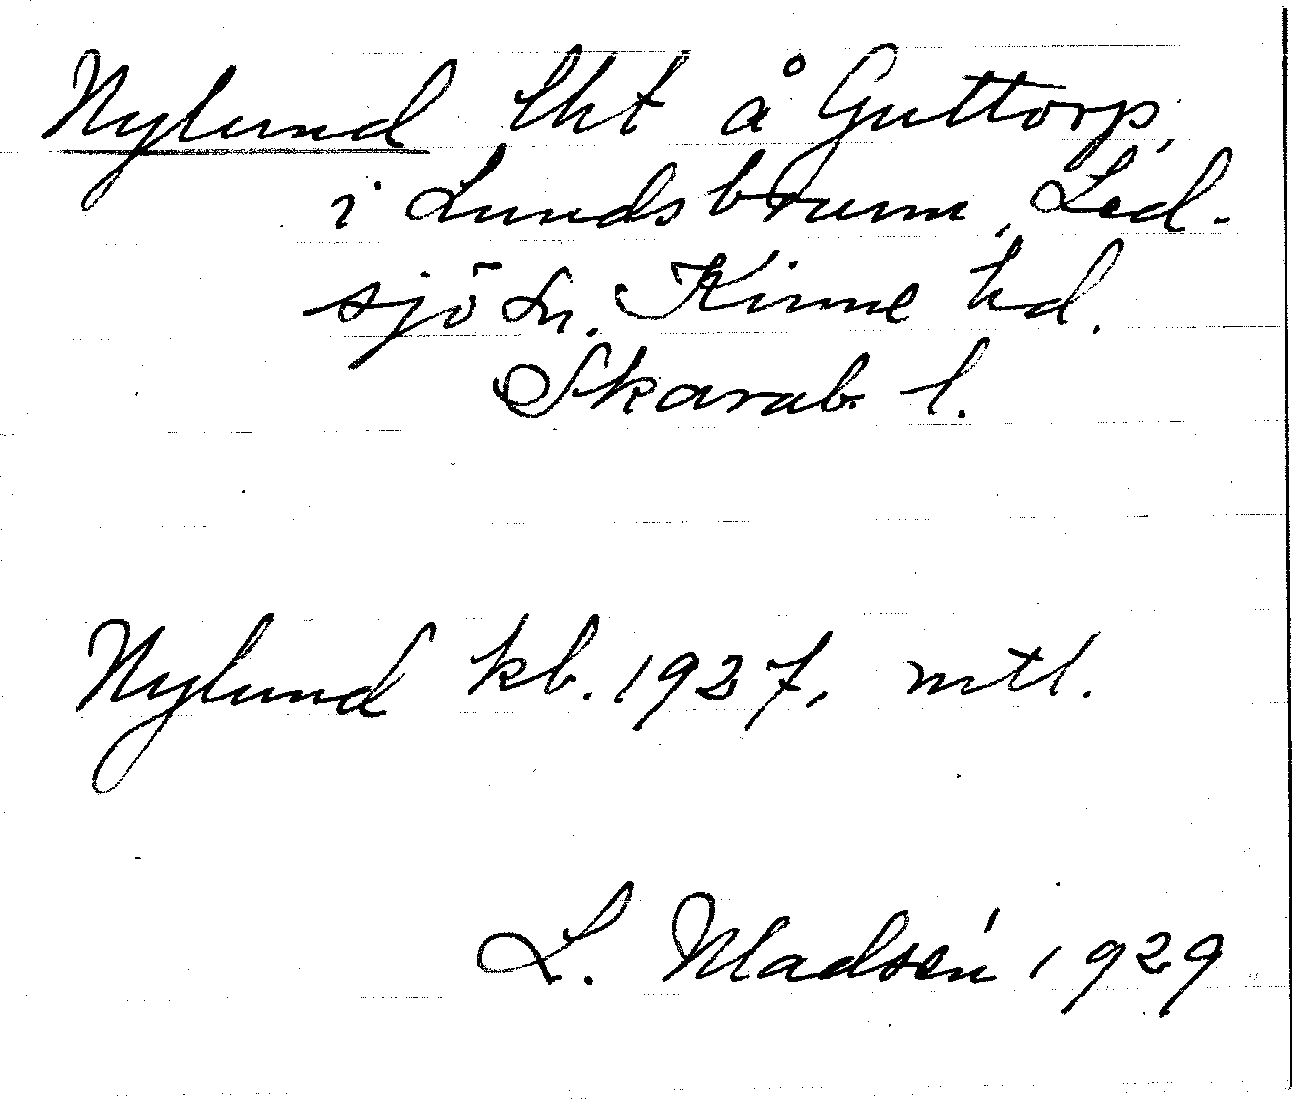 Nylund lht å Guttorp,
i Lundsbrunn, Led-
sjö sn. Kinne hd.
Skarab. l.
Nylund kb. 1927, mtl.
L. Madsén 1929